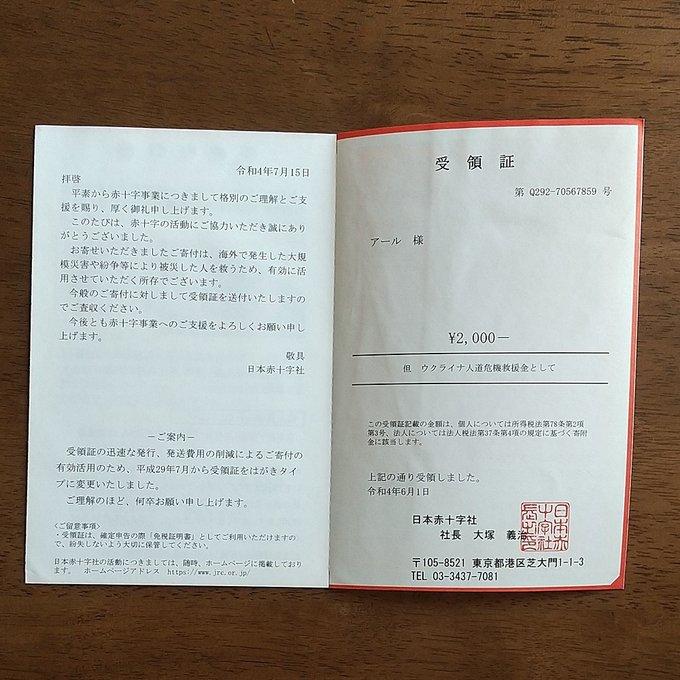 令和4年7月15日
拝啓
平素から赤十字事業につきまして格別のご理解とご支
援を賜り、厚く御礼申し上げます。
このたびは、赤十字の活動にご協力いただき誠にあり
がとうございました。
お寄せいただきましたご寄付は、海外で発生した大規
模災害や紛争等により被災した人を救うため、有効に活
用させていただく所存でございます。
今般のご寄付に対しまして受領証を送付いたしますの
でご査収ください。
今後とも赤十字事業へのご支援をよろしくお願い申し
上げます。
敬具
日本赤十字社
－ご案内－
受領証の迅速な発行、発送費用の削減によるご寄付の
有効活用のため、平成29年7月から受領証をはがきタイ
プに変更いたしました。
ご理解のほど、何卒お願い申し上げます。
<ご留意事項>
・受領証は、確定申告の際「免税証明書」としてご利用いただけますの
で、紛失しないよう大切に保管してください。
日本赤十字社の活動につきましては、随時、ホームページに掲載しており
ます。 ホームページアドレス https://www.jrc.or.jp/
受領証
第 Q292-70567859 号
アール 様
¥2,000－
但 ウクライナ人道危機救援金として
この受領証記載の金額は、個人については所得税法第78条第2項
第3号、法人については法人税法第37条第4項の規定に基づく寄附
金に該当します。
上記の通り受領しました。
令和4年6月1日
日本赤十字社
社長 大塚 義治
日本赤十字社長之印
〒105-8521 東京都港区芝大門1-1-3
TEL 03-3437-7081